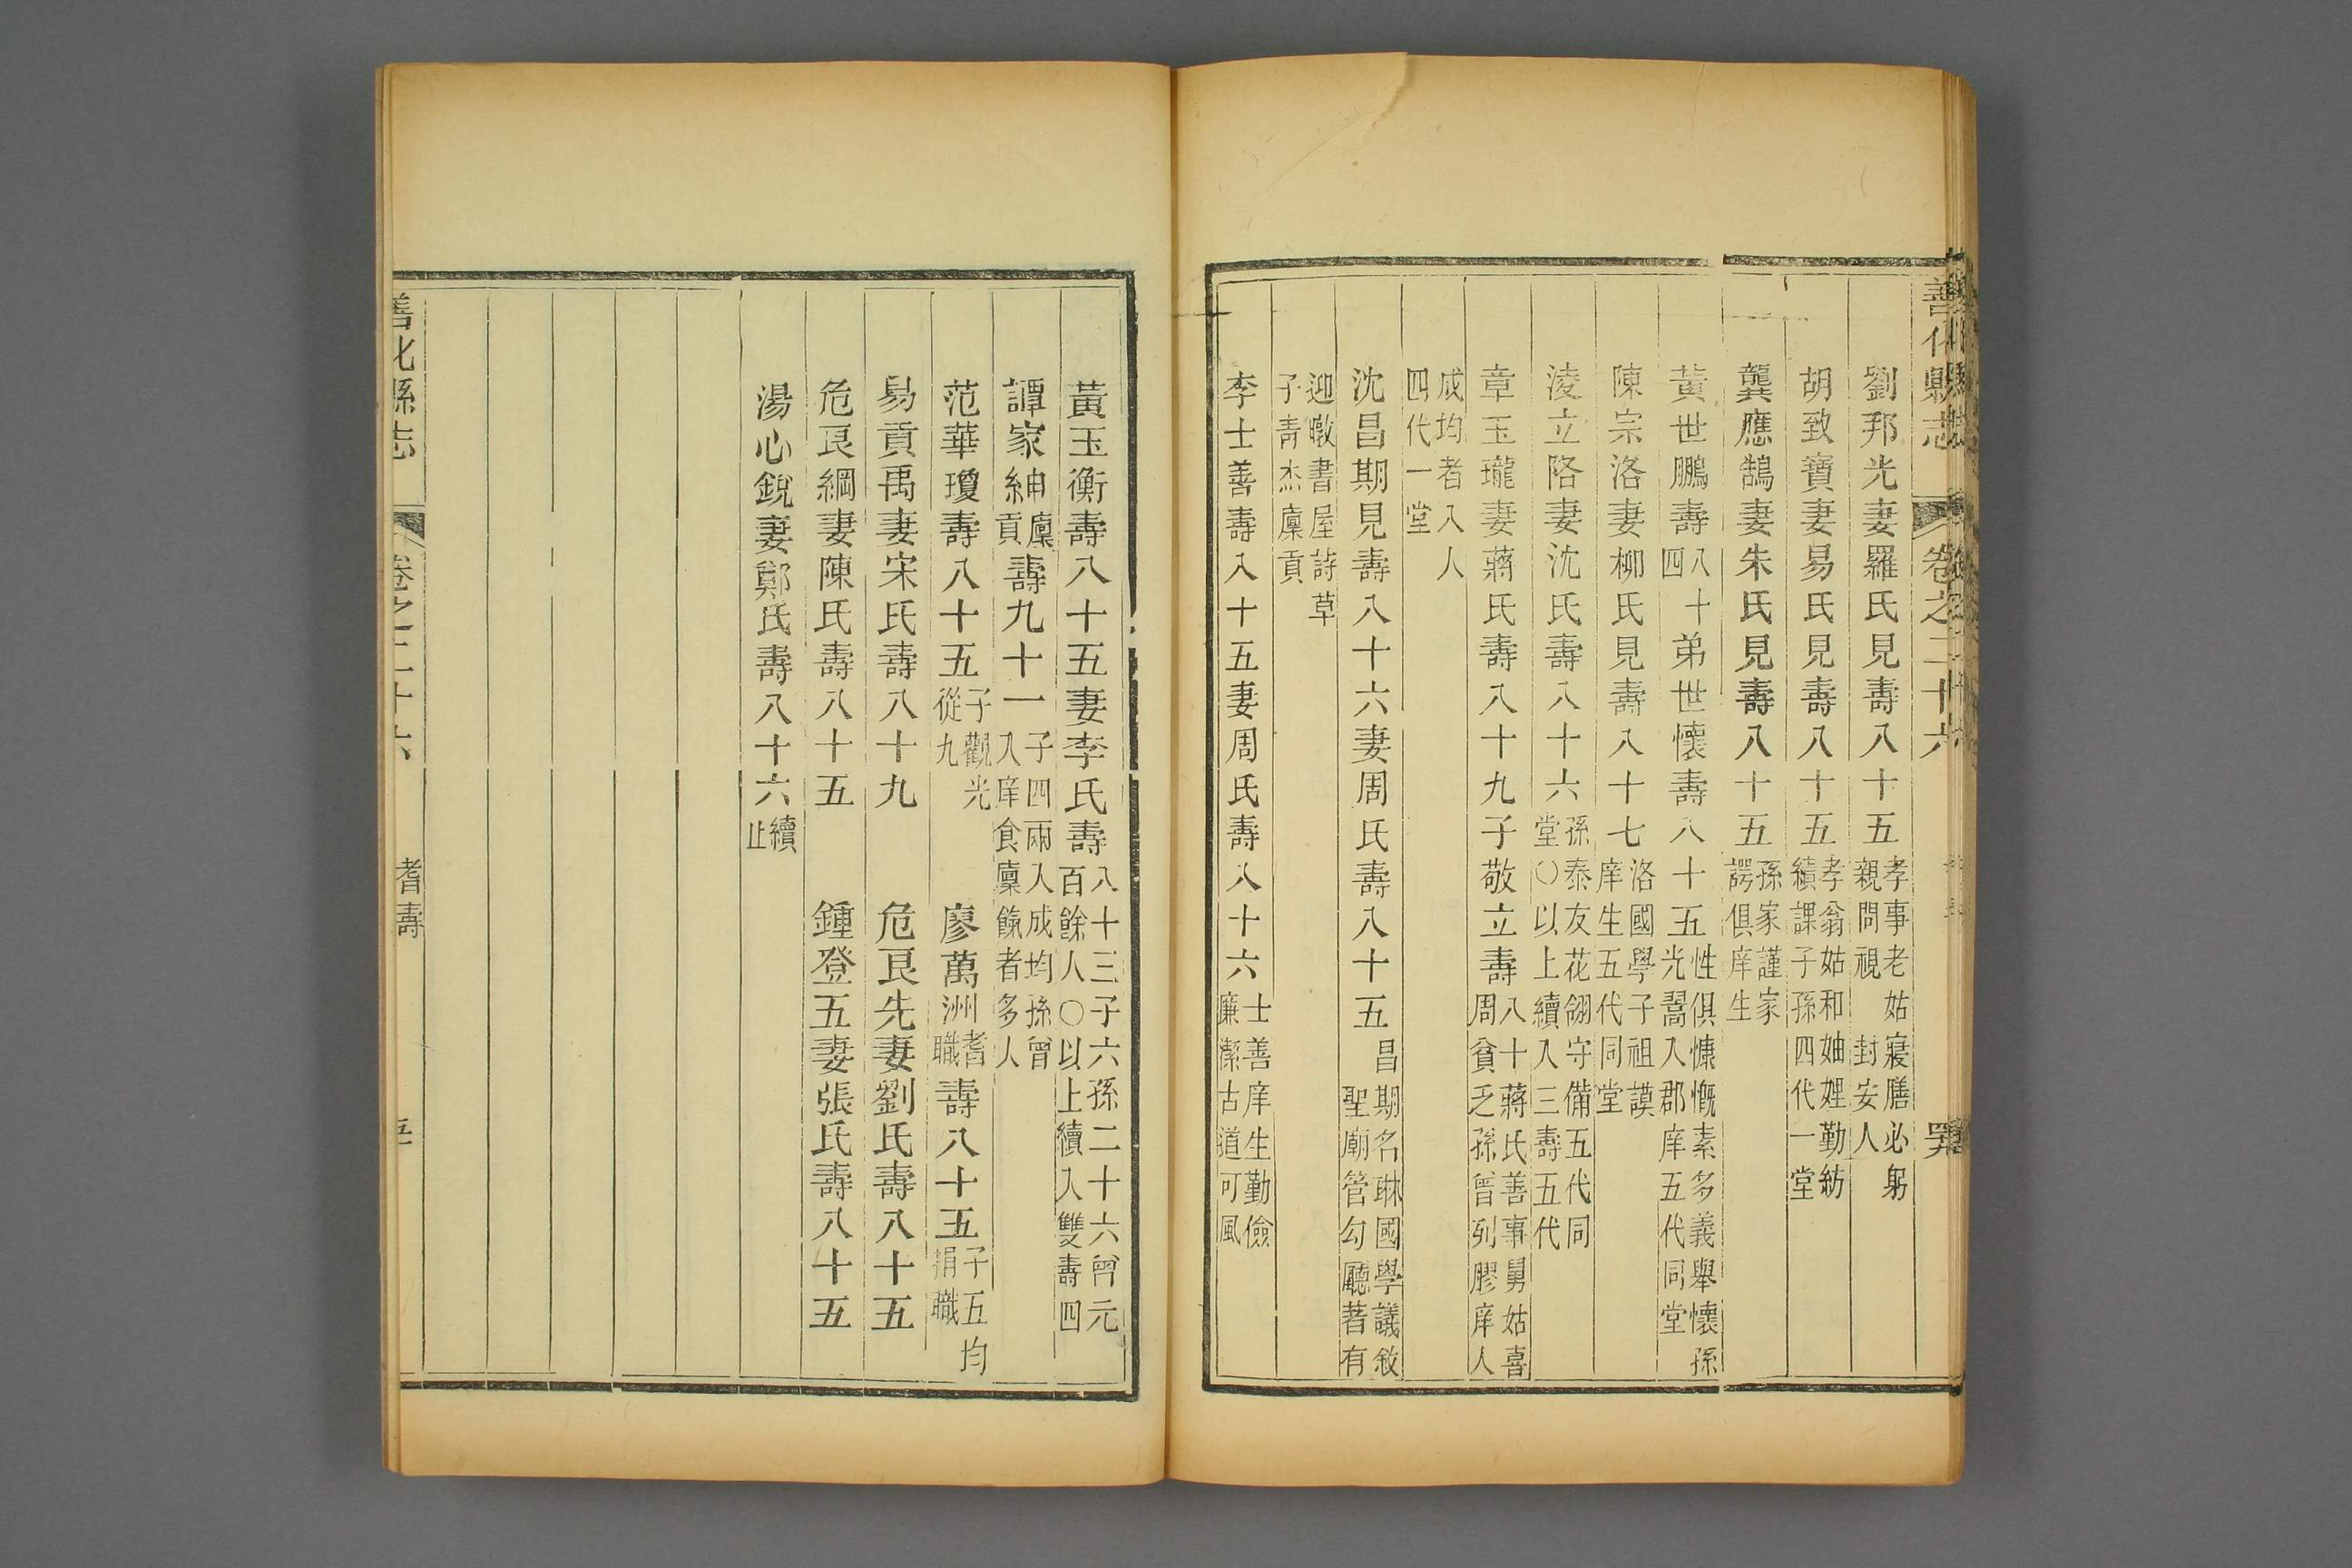 善化縣志 卷之二十六
劉邦光妻羅氏見壽八十五孝事老姑寢膳必躬親問視 封安人
胡致寶妻易氏見壽八十五孝翁姑和妯娌勤紡績課子孫四代一堂
龔應鵠妻朱氏見壽八十五孫家謹家諤俱庠生
黃世鵬壽八十四弟世懷壽八十五性俱慷慨素多義舉懷孫光翯入郡庠五代同堂
陳宗洛妻柳氏見壽八十七洛國學子祖謨庠生五代同堂
淩立陞妻沈氏壽八十六孫泰友花翎守備五代同堂〇以上續入三壽五代
章玉瓏妻蔣氏壽八十九子敬立壽八十蔣氏善事舅姑喜周貧乏孫曾列膠庠人
成均者入人四代一堂
沈昌期見壽八十六妻周氏壽八十五昌期名琳國學議敘聖廟管勾廳著有
迎暾書屋詩草子青杰廩貢
李士善壽八十五妻周氏壽八十六士善庠生勤儉廉潔古道可風
黃玉衡壽八十五妻李氏壽八十三子六孫二十六曾元百餘人〇以上續入雙壽四
譚家紳廩貢壽九十一子四兩入成均孫曾入庠食廩餼者多人
范華瓊壽八十五子觀光從九 廖萬洲耆職壽八十五子五均捐職
易貢禹妻宋氏壽八十九 危艮先妻劉氏壽八十五
危艮綱妻陳氏壽八十五 鍾登五妻張氏壽八十五
湯心銳妻鄭氏壽八十六續止
善化縣志 卷之二十六 耆壽